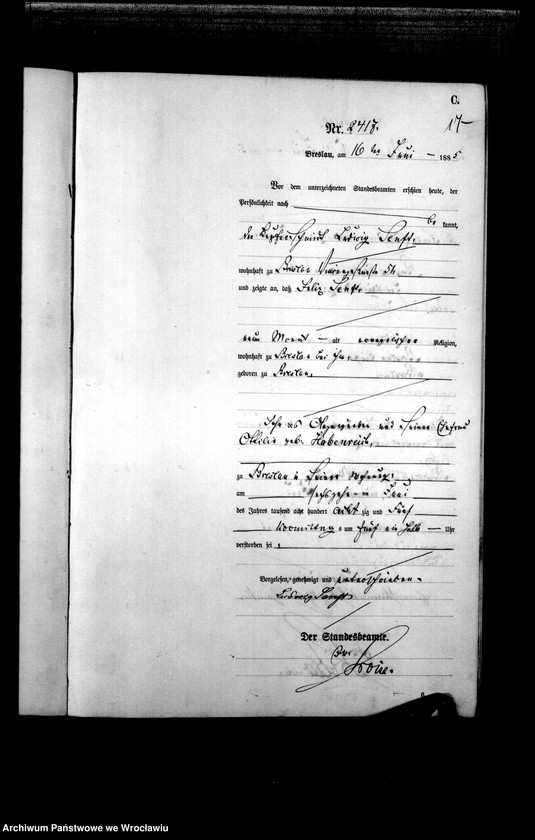 C.
Nr. 2417.
17
Breslau, am 16ten Juni 1885
Vor dem unterzeichneten Standesbeamten erschien heute, der
Persönlichkeit nach
be kannt,
der Kupferschmied Ludwig Senft,
wohnhaft zu Breslau 51
und zeigte an, daß Felix Senft,
neun Monat alt evangelischer Religion,
wohnhaft zu Breslau bei ihm,
geboren zu Breslau,
Sohn des Angezeigten und seiner Ehefrau
Ottilie geb. Habenreich,
zu Breslau in seiner Wohnung,
am sechszehnten Juni
des Jahres tausend acht hundert acht zig und fünf
Vormittags um fünf ein halb Uhr
verstorben sei.
Vorgelesen, genehmigt und unterschrieben
Ludwig Senft
Der Standesbeamte.
Archiwum Państwowe we Wrocławiu